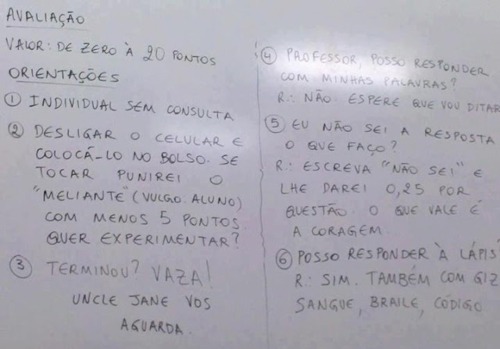 AVALIAÇÃO
VALOR: DE ZERO À 20 PONTOS
ORIENTAÇÕES
① INDIVIDUAL SEM CONSULTA
② DESLIGAR O CELULAR E
COLOCÁ-LO NO BOLSO. SE
TOCAR PUNIREI O
"MELIANTE" (VULGO: ALUNO)
COM MENOS 5 PONTOS.
QUER EXPERIMENTAR?
③ TERMINOU? VAZA!
UNCLE JANE VOS
AGUARDA.
④ PROFESSOR, POSSO RESPONDER
COM MINHAS PALAVRAS?
R.: NÃO. ESPERE QUE VOU DITAR
⑤ EU NÃO SEI A RESPOSTA
O QUE FAÇO?
R.: ESCREVA "NÃO SEI" E
LHE DAREI 0,25 POR
QUESTÃO. O QUE VALE É
A CORAGEM.
⑥ POSSO RESPONDER À LÁPIS
R: SIM. TAMBÉM COM GIZ
SANGUE, BRAILE, CÓDIGO